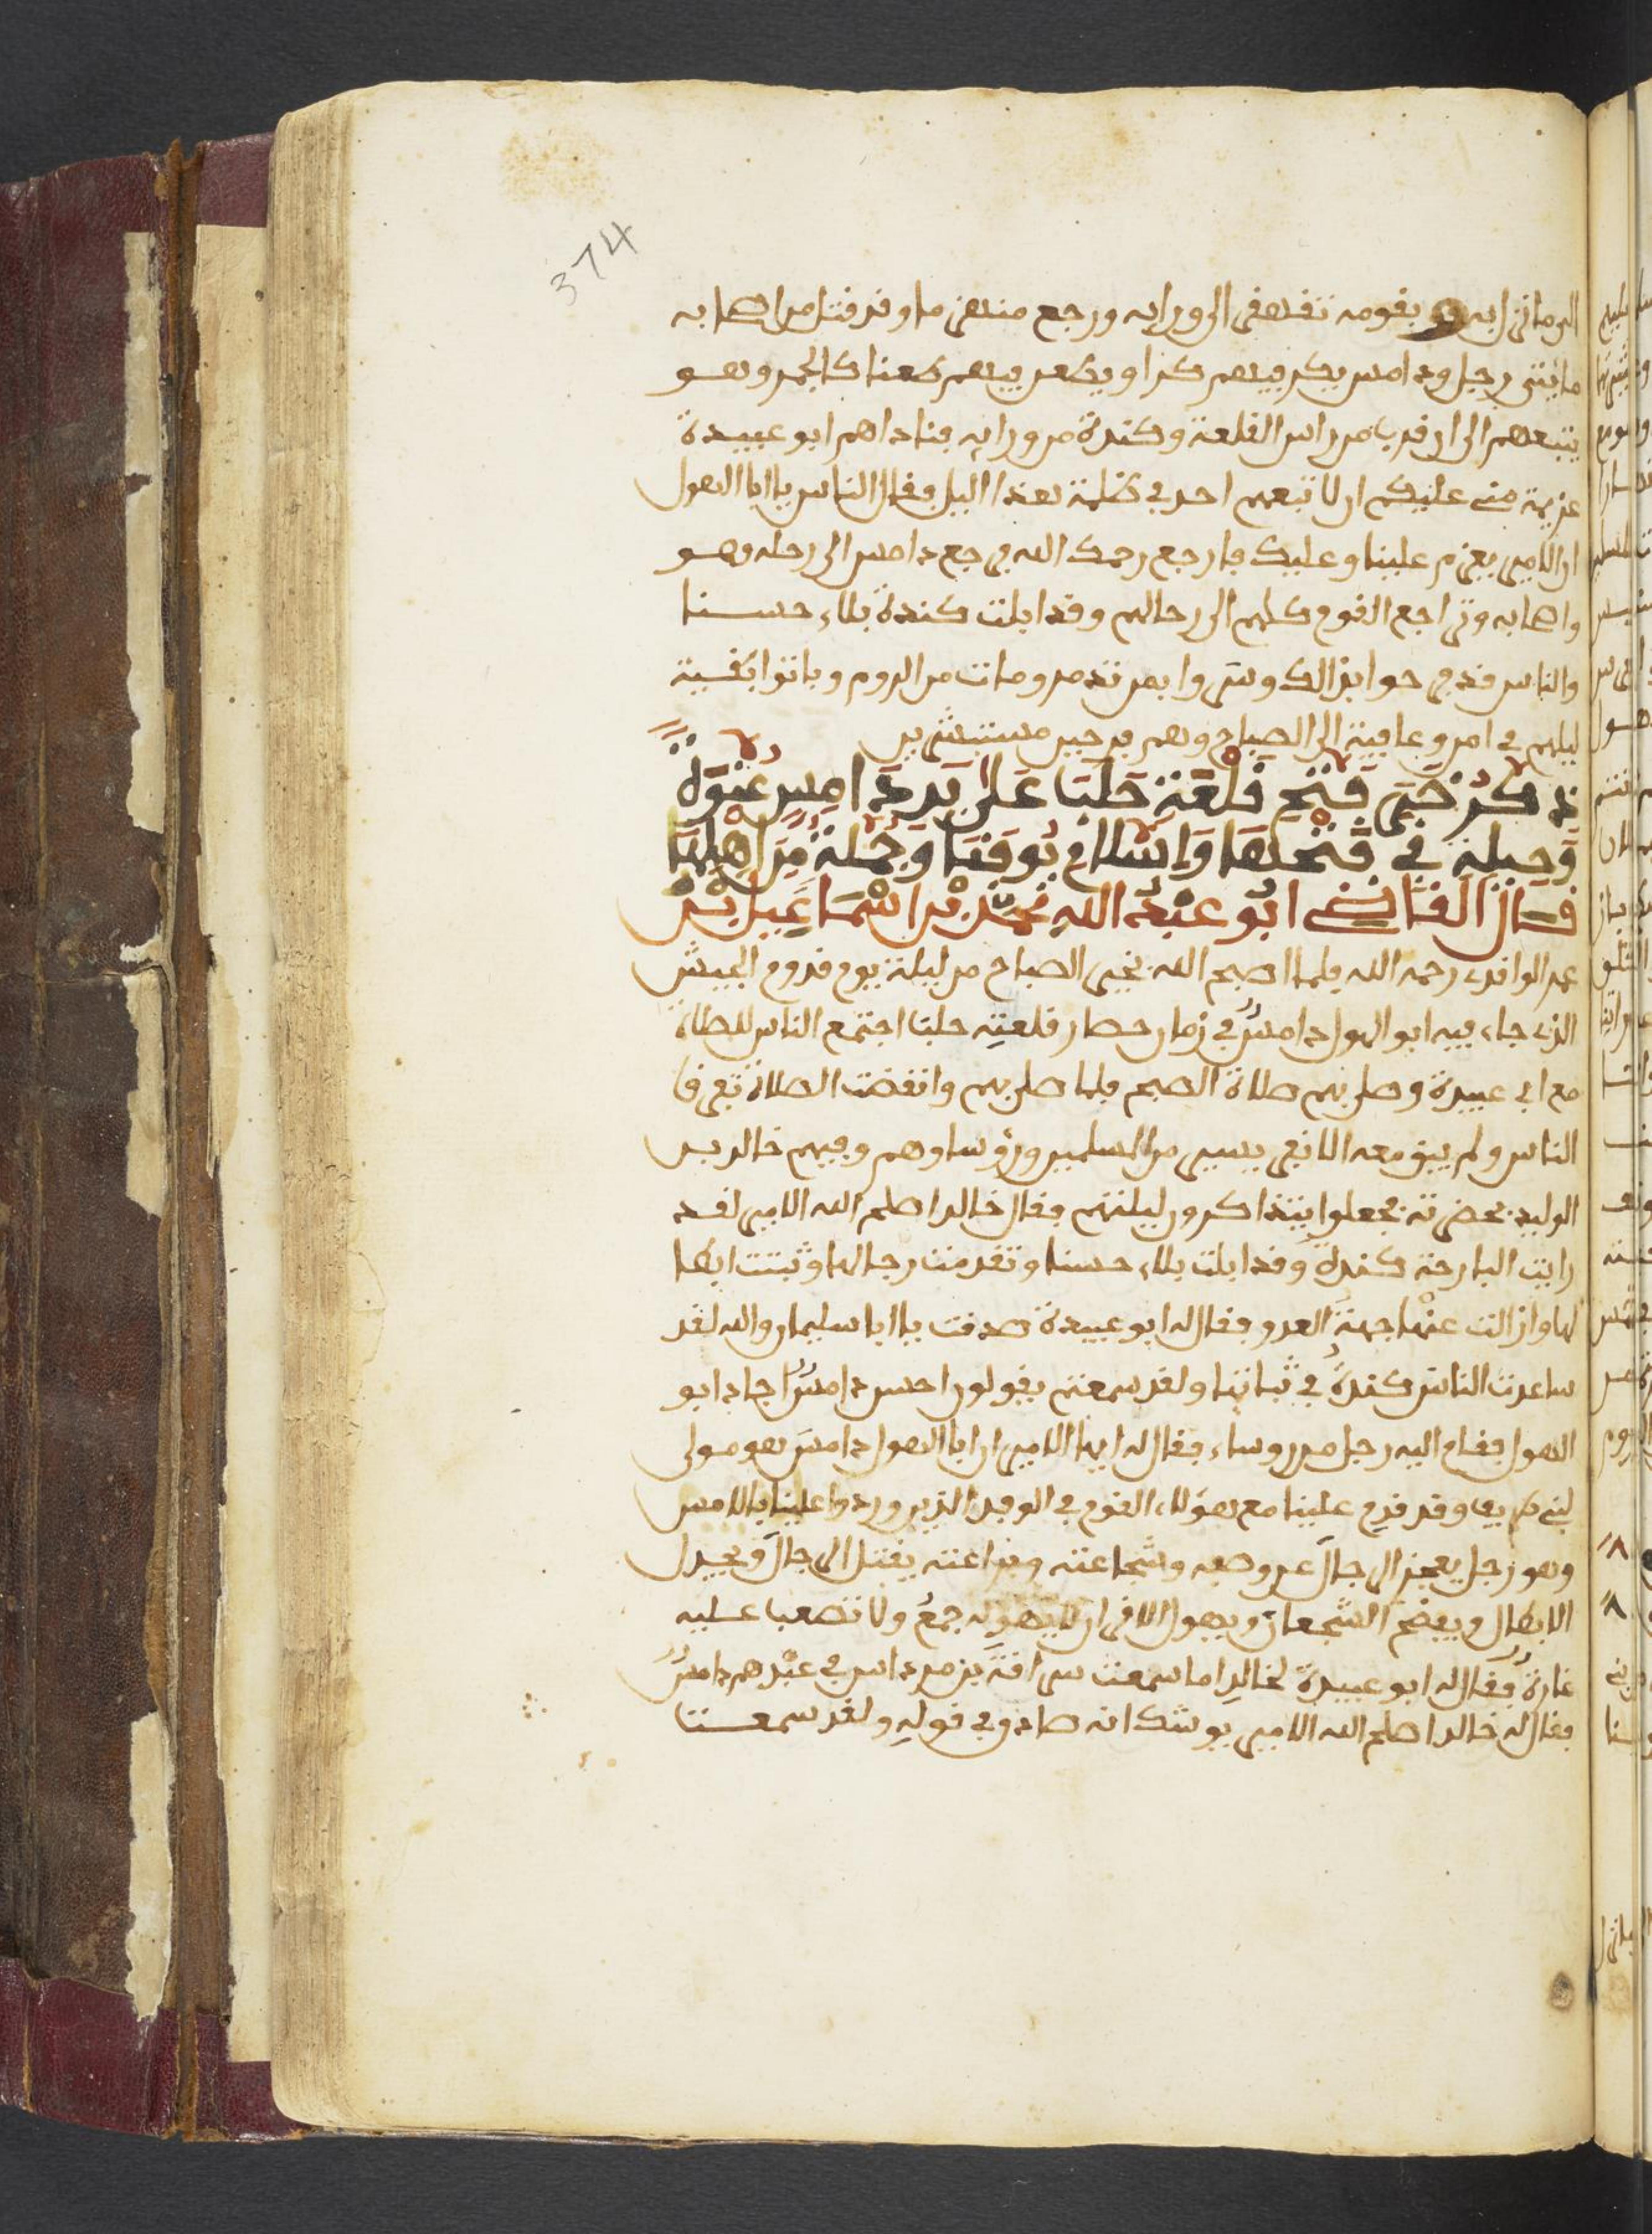 374
الى ما نزل به وبقومه تقهقر الى ورايه ورجع منهزما وقد قتل من اصحابه
مايتى رجل ودامس يكر فيهم كرا ويطعن فيهم طعنا كالجمر وهو
يتبعهم الى ان قرب من راس القلعة وكندة من ورايه فناداهم ابو عبيدة
عزيمة منى عليكم ان لا تبعهم احد في ظلمة هذا اليل فقال الناس يا ابا الهول
ان الامير يعزم علينا وعليك فارجع رحمك الله فرجع دامس الى رحله وهو
واصحابه وتراجع القوم كلهم الى رحالهم وقد ابلت كندة بلاء حسنا
والناس قد فرحوا بذالك وسروا بمن قتل ومات من الروم وباتوا بقية
ليلهم في امن وعافية الى الصباح وهم فرحين مستبشرين
ذكر خبر فتح قلعة حلب على يد دامس عنوة
وحيلة في فتحها واسلام يوقنا وجملة من اهلها
قال القاضي ابو عبد الله محمد بن اسماعيل بن
عمر الواقدى رحمه الله فلما اصبح الله بخير الصباح من ليلة يوم قدوم الجيش
الذى جاء فيه ابو الهول دامس في زمان حصار قلعة حلب اجتمع الناس للصلاة
مع ابى عبيدة وصلى بهم صلاة الصبح فلما صلى بهم وانقضت الصلاة تفرق
الناس ولم يبق معه الا نفر يسير من المسلمين ورؤساوهم وفيهم خالد بن
الوليد بحضرته فجعلوا يتذاكرون ليلتهم فقال خالد اصلح الله الامير لقد
رايت البارحة كندة وقد ابلت بلاء حسنا وتقدمت رجالها وثبتت ابطا
لها وازالت عنها جهة العدو فقال له ابو عبيدة صدقت يا ابا سليمان والله لقد
ساعدت الناس كندة في ثباتها ولقد سمعتهم يقولون احسن دامس اجاد ابو
الهول فقام اليه رجل من روساء فقال له ايها الامير ان ابا الهول دامس هو مولى
لبنى طريف وقد قدم علينا مع هؤلاء القوم في الوفد الذين وردوا علينا بالامس
وهو رجل يعجز الرجال عن وصفه وشجاعته وبراعته يقتل الرجال ويجدل
الابطال ويفضح الشجعان ويهول الاقران لا يهوله جمع ولا تصعب عليه
غارة فقال له ابو عبيدة لخالد اما سمعت سراقة بن مرداس في عبدهم دامس
فقال له خالد اصلح الله الامير يوشك انه صادق في قوله ولقد سمعت